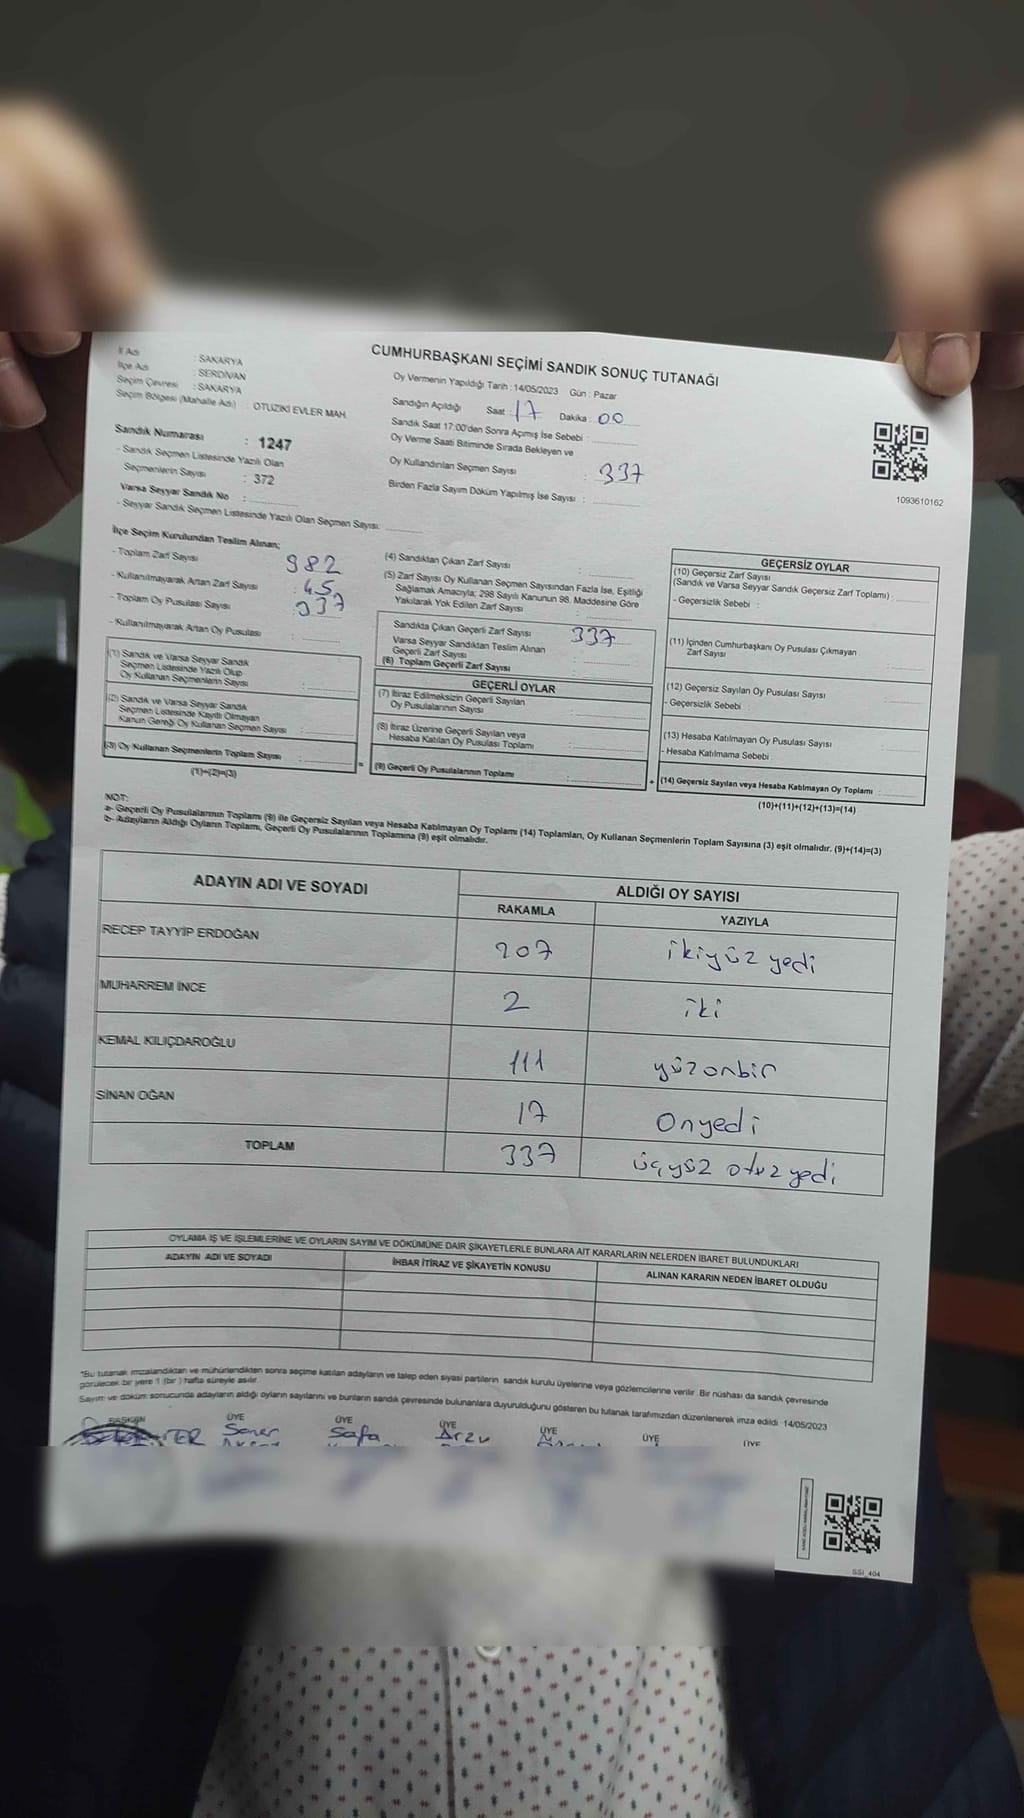 CUMHURBAŞKANI SEÇİMİ SANDIK SONUÇ TUTANAĞI
İl Adı : SAKARYA
İlçe Adı : SERDİVAN
Seçim Çevresi : SAKARYA
Seçim Bölgesi (Mahalle Adı) : OTUZİKİ EVLER MAH.
Sandık Numarası : 1247
- Sandık Seçmen Listesinde Yazılı Olan
Seçmenlerin Sayısı : 372
Varsa Seyyar Sandık No :
- Seyyar Sandık Seçmen Listesinde Yazılı Olan Seçmen Sayısı:
Oy Vermenin Yapıldığı Tarih : 14/05/2023 Gün : Pazar
Sandığın Açıldığı Saat : 17 Dakika : 00
Sandık Saat 17:00'den Sonra Açımış İse Sebebi :
Oy Verme Saati Bitiminde Sırada Bekleyen ve
Oy Kullandırılan Seçmen Sayısı : 337
Birden Fazla Sayım Döküm Yapılmış İse Sayısı :
1093610162
İlçe Seçim Kurulundan Teslim Alınan;
- Toplam Zarf Sayısı : 982
- Kullanılmayarak Artan Zarf Sayısı : 45
- Toplam Oy Pusulası Sayısı : 337
- Kullanılmayarak Artan Oy Pusulası :
(1) Sandık ve Varsa Seyyar Sandık
Seçmen Listesinde Yazılı Olup
Oy Kullanan Seçmenlerin Sayısı :
(2) Sandık ve Varsa Seyyar Sandık
Seçmen Listesinde Kayıtlı Olmayan
Kanun Gereği Oy Kullanan Seçmen Sayısı :
(3) Oy Kullanan Seçmenlerin Toplam Sayısı :
(1)+(2)=(3)
(4) Sandıktan Çıkan Zarf Sayısı :
(5) Zarf Sayısı Oy Kullanan Seçmen Sayısından Fazla İse, Eşitliği
Sağlamak Amacıyla; 298 Sayılı Kanunun 98. Maddesine Göre
Yakılarak Yok Edilen Zarf Sayısı :
Sandıkta Çıkan Geçerli Zarf Sayısı : 337
Varsa Seyyar Sandıktan Teslim Alınan
Geçerli Zarf Sayısı :
(6) Toplam Geçerli Zarf Sayısı :
=
GEÇERLİ OYLAR
(7) İtiraz Edilmeksizin Geçerli Sayılan
Oy Pusulalarının Sayısı :
(8) İtiraz Üzerine Geçerli Sayılan veya
Hesaba Katılan Oy Pusulası Toplamı :
(9) Geçerli Oy Pusulalarının Toplamı :
+
GEÇERSİZ OYLAR
(10) Geçersiz Zarf Sayısı
(Sandık ve Varsa Seyyar Sandık Geçersiz Zarf Toplamı) :
- Geçersizlik Sebebi :
(11) İçinden Cumhurbaşkanı Oy Pusulası Çıkmayan
Zarf Sayısı :
(12) Geçersiz Sayılan Oy Pusulası Sayısı :
- Geçersizlik Sebebi :
(13) Hesaba Katılmayan Oy Pusulası Sayısı :
- Hesaba Katılmama Sebebi :
(14) Geçersiz Sayılan veya Hesaba Katılmayan Oy Toplamı :
(10)+(11)+(12)+(13)=(14)
NOT:
a- Geçerli Oy Pusulalarının Toplamı (9) ile Geçersiz Sayılan veya Hesaba Katılmayan Oy Toplamı (14) Toplamları, Oy Kullanan Seçmenlerin Toplam Sayısına (3) eşit olmalıdır. (9)+(14)=(3)
b- Adayların Aldığı Oyların Toplamı, Geçerli Oy Pusulalarının Toplamına (9) eşit olmalıdır.
ADAYIN ADI VE SOYADI ALDIĞI OY SAYISI
RAKAMLA YAZIYLA
RECEP TAYYİP ERDOĞAN 207 ikiyüz yedi
MUHARREM İNCE 2 iki
KEMAL KILIÇDAROĞLU 111 yüzonbir
SİNAN OĞAN 17 Onyedi
TOPLAM 337 üçyüz otuz yedi
OYLAMA İŞ VE İŞLEMLERİNE VE OYLARIN SAYIM VE DÖKÜMÜNE DAİR ŞİKAYETLERLE BUNLARA AİT KARARLARIN NELERDEN İBARET BULUNDUKLARI
ADAYIN ADI VE SOYADI İHBAR İTİRAZ VE ŞİKAYETİN KONUSU ALINAN KARARIN NEDEN İBARET OLDUĞU
*Bu tutanak imzalandıktan ve mühürlendikten sonra seçime katılan adayların ve talep eden siyasi partilerin sandık kurulu üyelerine veya gözlemcilerine verilir. Bir nüshası da sandık çevresinde
görülecek bir yere 1 (bir ) hafta süreyle asılır.
Sayım ve döküm sonucunda adayların aldığı oyların sayılarını ve bunların sandık çevresinde bulunanlara duyurulduğunu gösteren bu tutanak tarafımızdan düzenlenerek imza edildi. 14/05/2023
BAŞKAN ÜYE ÜYE ÜYE ÜYE ÜYE ÜYE
Soner Safa Arzu
SSİ_404